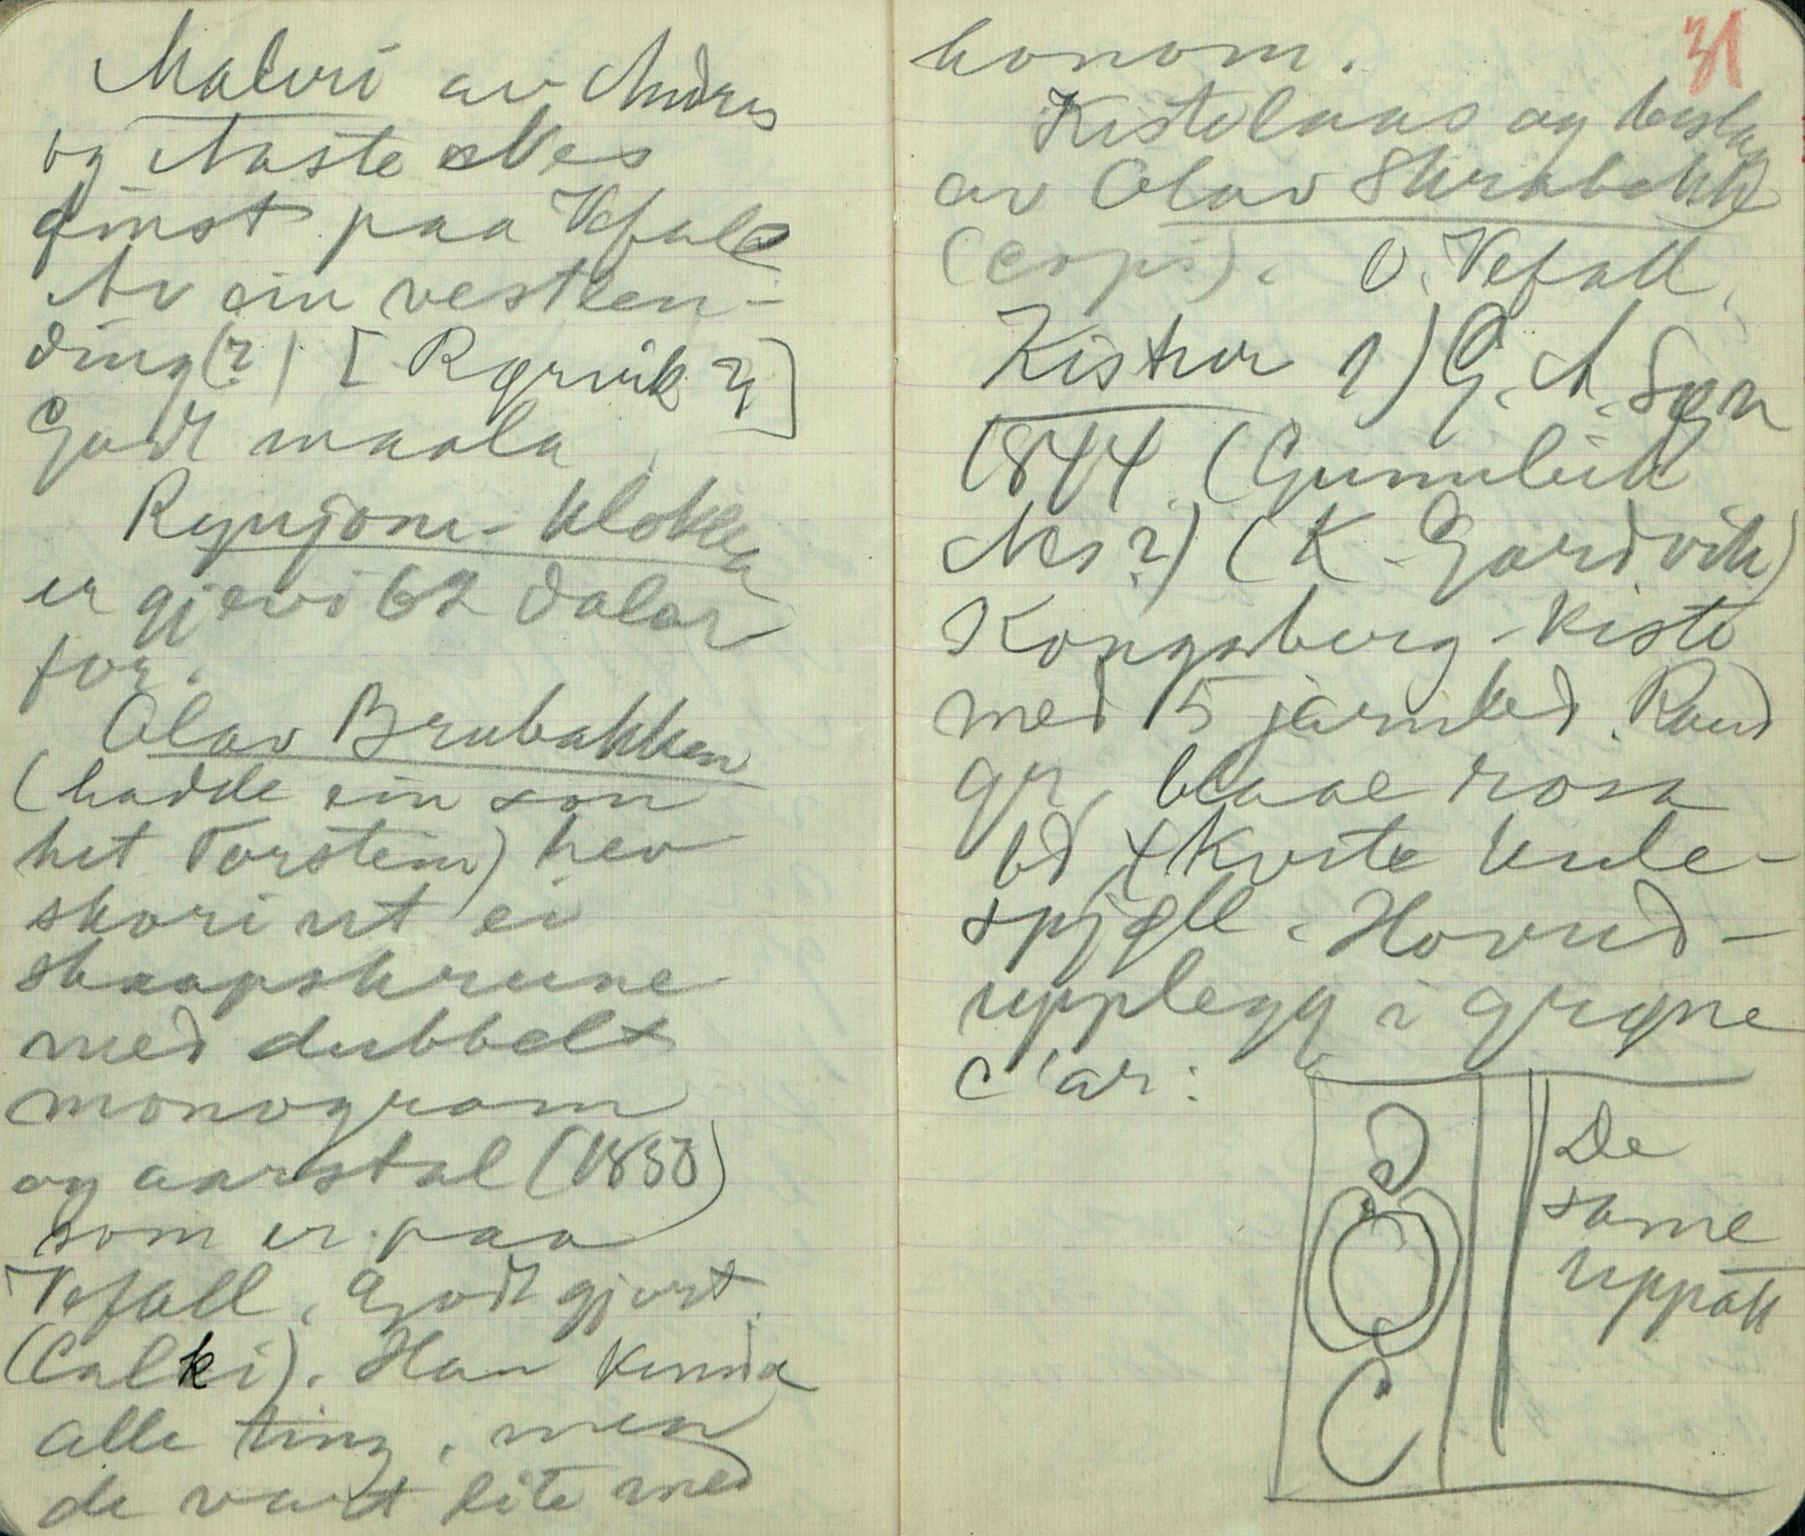 Maleri av Andres
og Aaste Nes
finst paa Vefall
Av ein vestlen-
ding(?) [Rørvik?]
Godt maala
Rynjom-klokka
er gjevi 62 dalar
for.
Olav Brubakken
(hadde ein son
het Torstein) hev
skori ut ei
skaapskrune
med dubbelt
monogram
og aarstal (1850)
som er paa
Vefall. Godt gjort
(Calki). Han kunna
alle ting, men
de vart lite med
31
honom.
Kistelaas og beslag
av Olav Skrabekk
(copi). O. Vefall.
Kistur 1) G. A. Søn
1844 (Gunnleik
Nes?) (K. Gardvik)
Kongsberg-kiste
med 5 järnbed. Raud
gr, blaae rosa
bd, 4 kvite kule-
spjøll. Hovud-
upplegg i grøne
C'ar:
De
same
uppatt